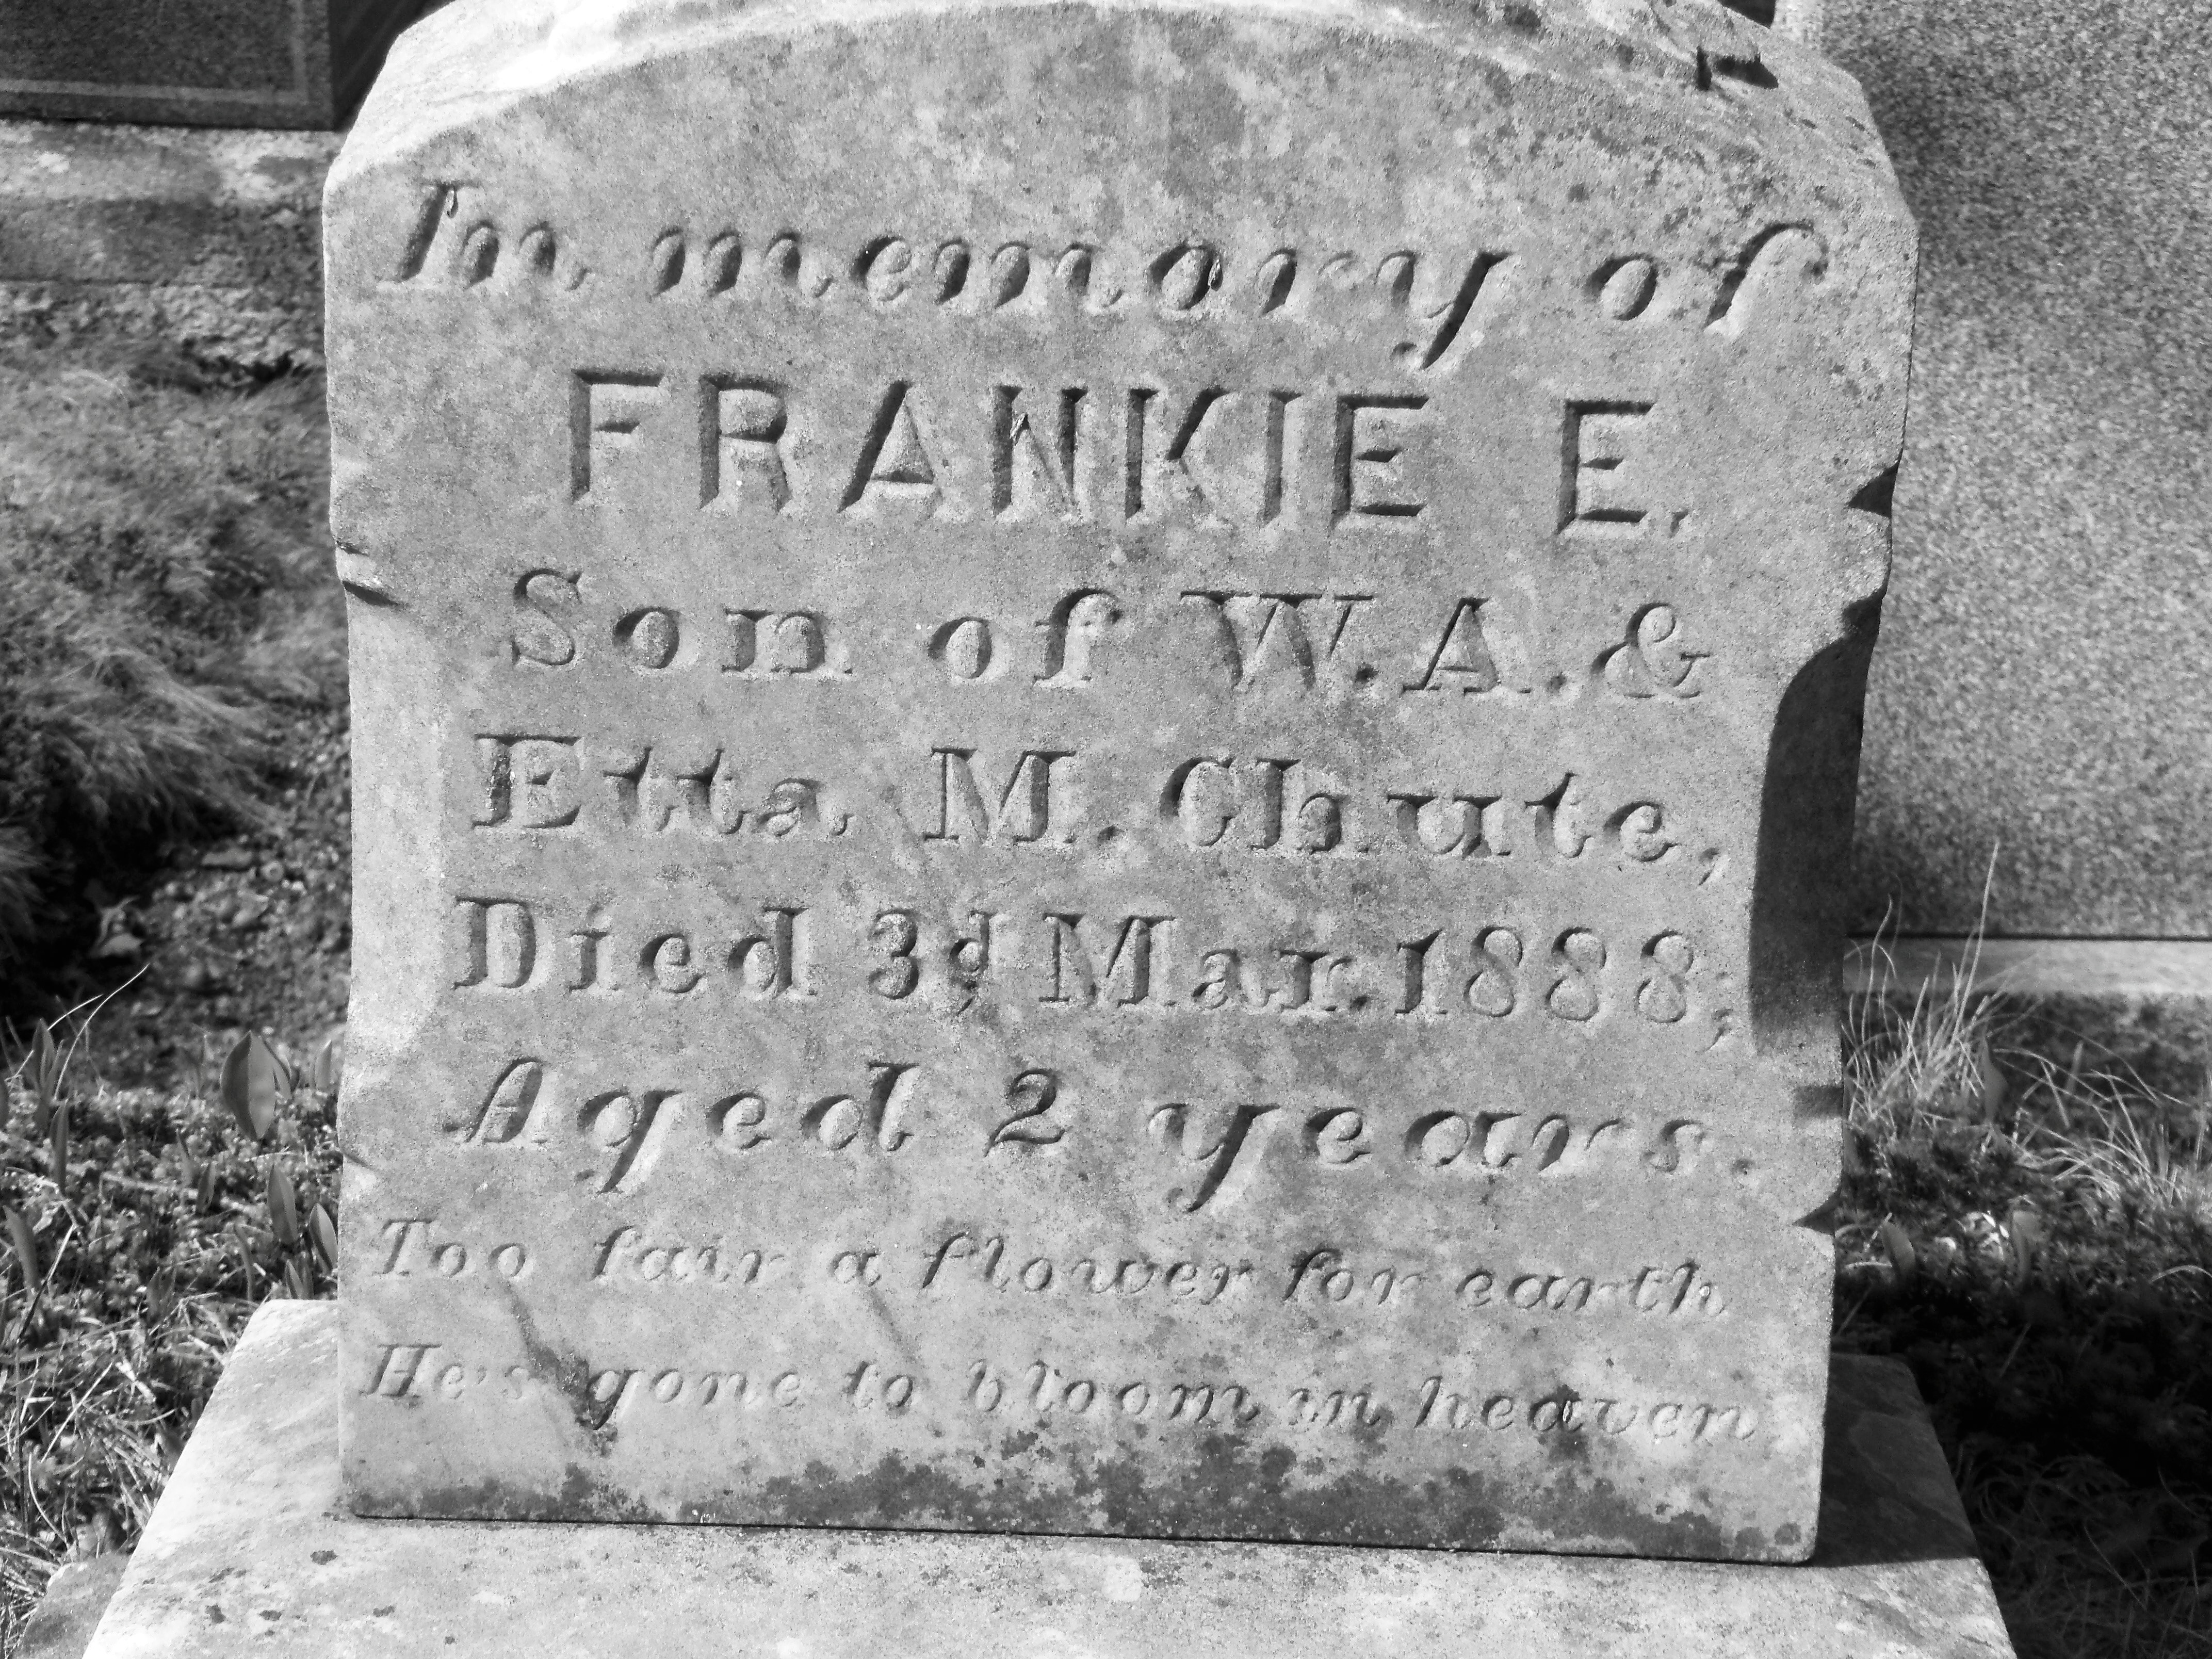 In memory of
FRANKIE E.
Son of W. A. &
Etta M. Chute,
Died 3d Mar. 1888;
Aged 2 years.
Too fair a flower for earth
He's gone to bloom in heaven